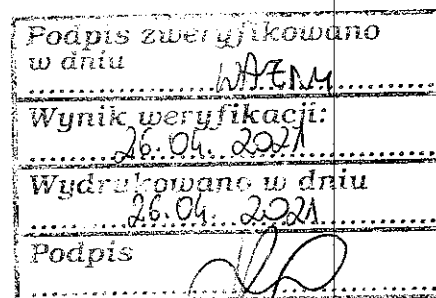 Podpis zweryfikowano
w dniu
WAŻNY
Wynik weryfikacji:
26.04.2021
Wydrukowano w dniu
26.04.2021
Podpis